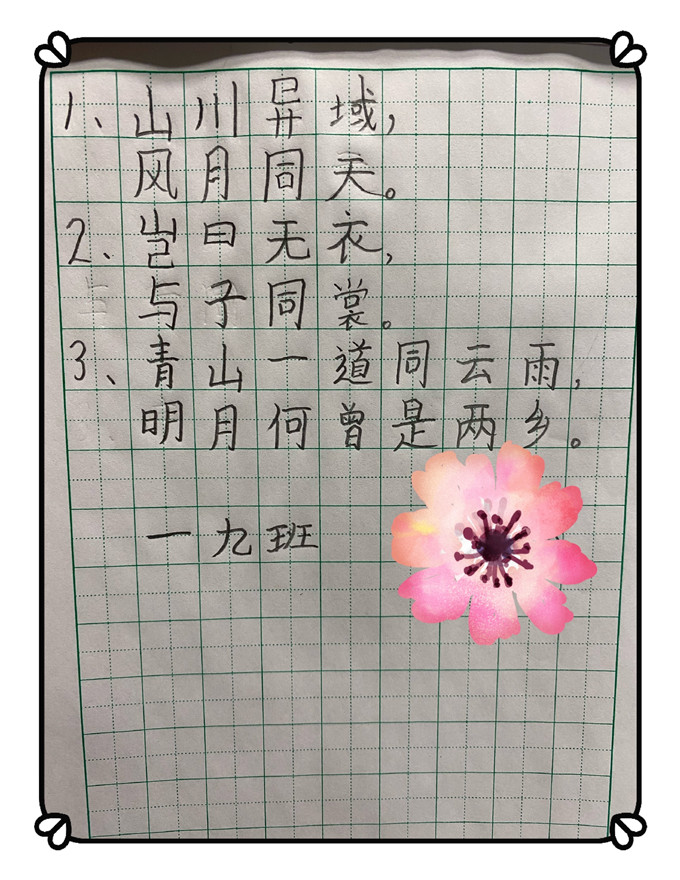 1、山川异域，
风月同天。
2、岂曰无衣，
与子同裳。
3、青山一道同云雨，
明月何曾是两乡。
一九班